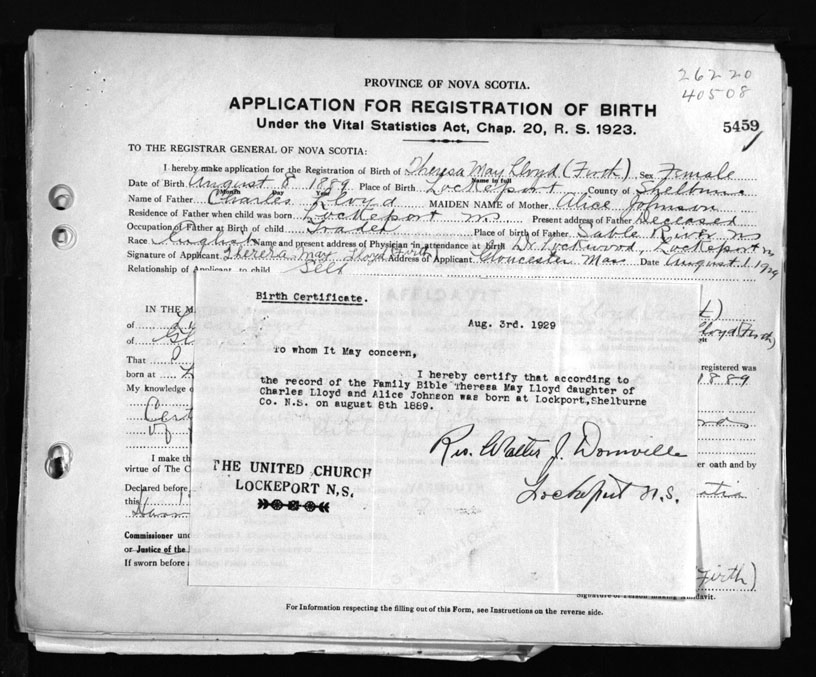 PROVINCE OF NOVA SCOTIA.
26220
40508
APPLICATION FOR REGISTRATION OF BIRTH
Under the Vital Statistics Act, Chap. 20, R. S. 1923.
5459
TO THE REGISTRAR GENERAL OF NOVA SCOTIA:
I hereby make application for the Registration of Birth of Theresa May Lloyd (Firth) Sex Female
Name in full
Date of Birth August 8 1889 Place of Birth Lockeport County of Shelburne
Month Day Year
Name of Father Charles Lloyd MAIDEN NAME of Mother Alice Johnson
Residence of Father when child was born Lockeport NS Present address of Father Deceased
Occupation of Father at Birth of child Trader Place of birth of Father Sable River NS
Race English Name and present address of Physician in attendance at birth Dr Lockwood, Lockeport NS
Signature of Applicant Theresa May Lloyd Firth Address of Applicant Gloucester Mass Date August 1 1929
Relationship of Applicant to child Self
IN THE M
of
of
That
born at
My knowledge
Cert
of
I make th
virtue of The C
Declared before
this
Commissioner
or Justice of the
If sworn before
Birth Certificate.
Aug. 3rd. 1929
To whom It May concern,
I hereby certify that according to
the record of the Family Bible Theresa May Lloyd daughter of
Charles Lloyd and Alice Johnson was born at Lockport,Shelburne
Co. N.S. on august 8th 1889.
Rev. Walter J. Domville
Lockeport N.S.
THE UNITED CHURCH
LOCKEPORT N,S.
Lloyd (Firth)
registered was
1889
er oath and by
Firth)
Signature of Person making Affidavit.
For Information respecting the filling out of this Form, see Instructions on the reverse side.